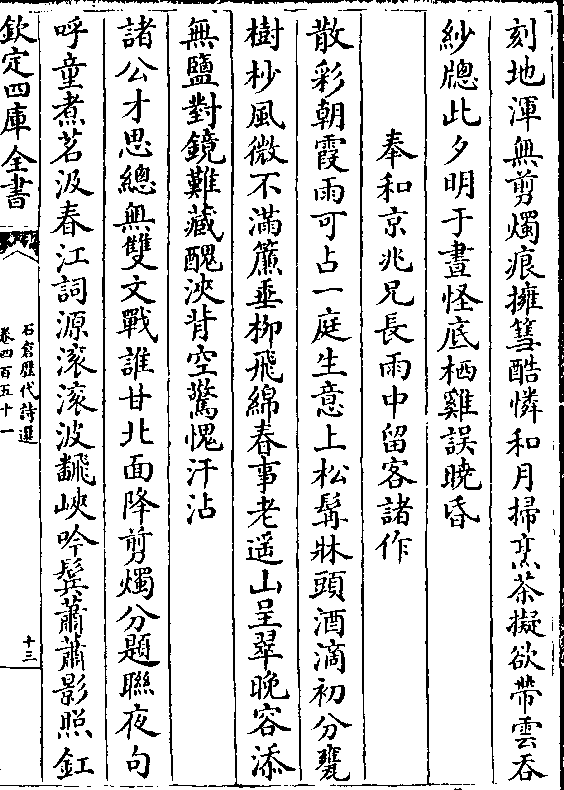 刻地渾無剪燭痕擁篲酷憐和月掃烹茶擬欲帶雲吞
紗牎此夕明于晝怪底栖雞誤曉昏
奉和京兆兄長雨中留客諸作
散彩朝霞雨可占一庭生意上松髯牀頭酒滴初分甕
樹杪風微不滿簾垂柳飛綿春事老遥山呈翠晚容添
無鹽對鏡難藏醜浹背空驚愧汗沾
諸公才思總無雙文戰誰甘北面降剪燭分題聯夜句
呼童煮茗汲春江詞源滚滚波翻峽吟鬓蕭蕭影照釭
欽定四庫全書
石倉歴代詩選
卷四百五十一
十三